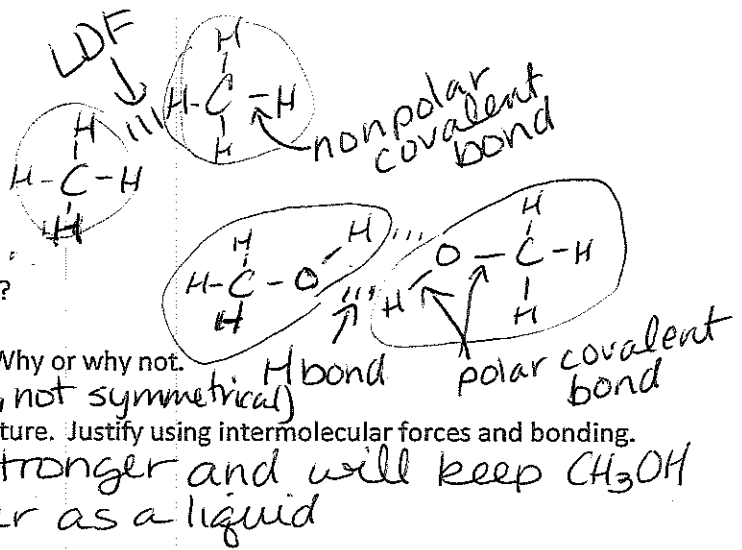 LDF
H
H-C-H
H
nonpolar
covalent
bond
H
H-C-H
H
H
H-C-O
H
H
H
O-C-H
H
H
?
Why or why not.
H bond
polar covalent
bond
, not symmetrical)
ture. Justify using intermolecular forces and bonding.
tronger and will keep CH₃OH
er as a liquid